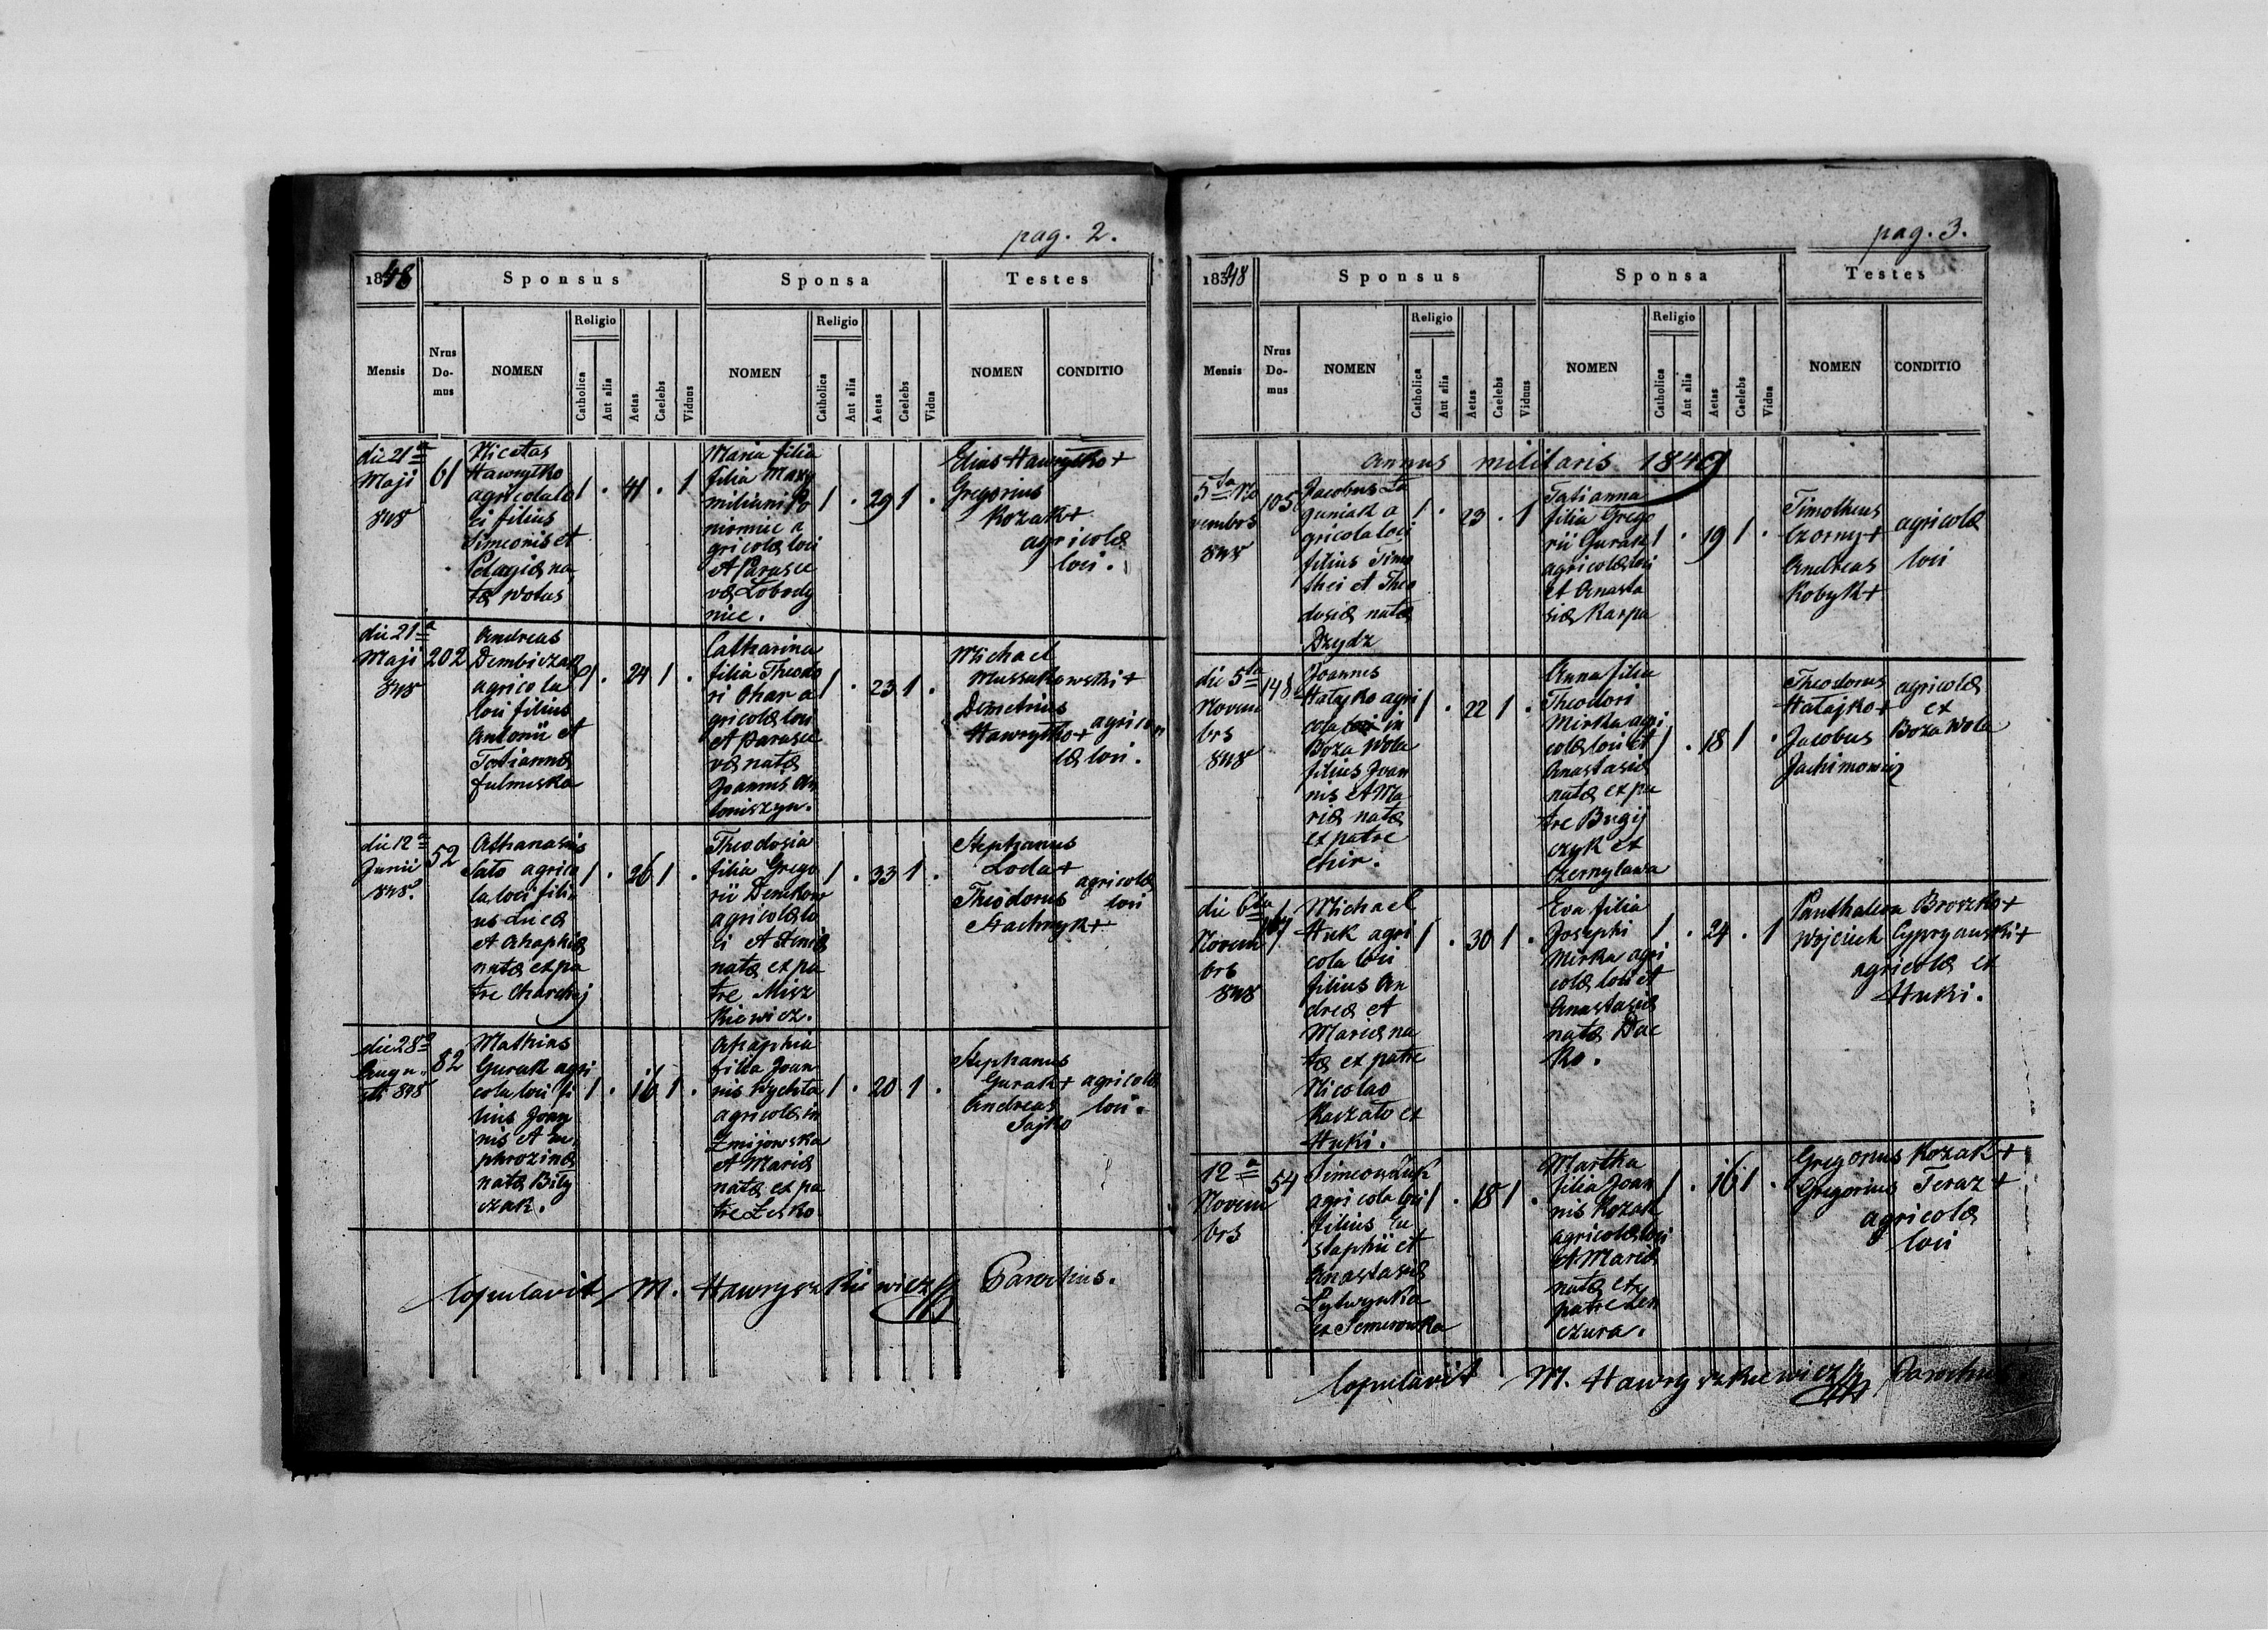 pag. 2.
1848
Sponsus
Sponsa
Testes
Mensis
Nrus Do- mus
NOMEN
Religio
Catholica
Aut alia
Aetas
Caelebs
Viduus
NOMEN
Religio
Catholica
Aut alia
Aetas
Caelebs
Vidua
NOMEN
CONDITIO
die 21a
Maji
848
61
Nicetas
Hawrytko
agricola lo
ci filius
Simeonis et
Pelagiæ na
tæ Wotus
1 . 41 . 1
Maria filia
filia Maxy
miliani Po
niomnic a
gricolæ loci
et Parasce
væ Lobody
nice.
1 . 29 1 .
Elias Hawrytko +
Gregorius
Kozak +
agricolæ
loci.
die 21a
Maji
848
202
Andreas
Dembiczak
agricola
loci filius
Antonii et
Tatiannæ
Fulmeska
1 . 24 1 .
Catharina
filia Theodo
ri Ohar a
gricolæ loci
et Parasce
væ natæ
Joannis An
toniszyn.
1 . 23 1 .
Michael
Mussakowski +
Demetrius
Hawrytko +
agrico
læ loci.
die 12a
Junii
848.
52
Athanasius
Sato agrico
la loci fili
us Lucæ
et Ahaphiæ
natæ ex pa
tre Charchaj
1 . 26 1 .
Theodosia
filia Grego
rii Denkow
agricolæ lo
ci et Aniæ
natæ ex pa
tre Misz
kiewicz.
1 . 33 1 .
Stephanus
Loda +
Theodorus
Stachnyk +
agricolæ
loci
die 28a
Augu
sti 848
82
Mathias
Gurak agri
cola loci fi
lius Joan
nis et Eu
phrozinæ
natæ Bily
czak.
1 . 16 1 .
Ahaphia
filia Joan
nis Wychota
agricolæ in
Zmijowska
et Mariæ
natæ ex pa
tre Lesko
1 . 20 1 .
Stephanus
Gurak +
Andreas
Sajko
agricolæ
loci.
Copulavit M. Hawryszkiewicz Parochus.
pag. 3.
1848
Sponsus
Sponsa
Testes
Mensis
Nrus Do- mus
NOMEN
Religio
Catholica
Aut alia
Aetas
Caelebs
Viduus
NOMEN
Religio
Catholica
Aut alia
Aetas
Caelebs
Vidua
NOMEN
CONDITIO
annus militaris 1849
5ta No
vembrs
848
105
Jacobus La
guniak a
gricola loci
filius Timo
thei et Theo
dosiæ natæ
Dzydz
1 . 23 . 1
Tatianna
filia Grego
rii Gurak
agricolæ loci
et Anasta
siæ Karpa
1 . 19 1 .
Timotheus
Czorny +
Andreas
Kobylk +
agricolæ
loci
die 5ta
Novem
brs
848
148
Joannes
Hatajko agri
cola in
Boza Wola
filius Joan
nis et Ma
riæ natæ
ex patre
Chir.
1 . 22 1 .
Anna filia
Theodori
Mirka agri
colæ loci et
Anastasiæ
natæ ex pa
tre Bugij
czyk ex
Czernylawa
1 . 18 1 .
Theodorus
Hatajko +
Jacobus
Jachimowicz
agricolæ
ex
Boza Wola
die 6ta
Novem
brs
848
Michael
Huk agri
cola loci
filius An
dreæ et
Mariæ na
tæ ex patre
Nicolao
Kaczalo ex
Huki.
1 . 30 1 .
Eva filia
Josephi
Mirka agri
colæ loci et
Anastasiæ
natæ Dac
ko.
1 . 24 . 1
Panthaleon Broszko +
Wojciech Cypryanski +
agricolæ ex
Huki.
12a
Novem
brs
54
Simeon Zuk
agricola loci
filius Eu
staphii et
Anastasiæ
Lytwynka
ex Semerowka
1 . 18 1 .
Martha
filia Joan
nis Kozak
agricolæ loci
et Mariæ
natæ ex
patre Len
czura.
1 . 16 1 .
Gregorius Kozak +
Gregorius Feraz +
agricolæ
loci
Copulavit M. Hawryszkiewicz Parochus